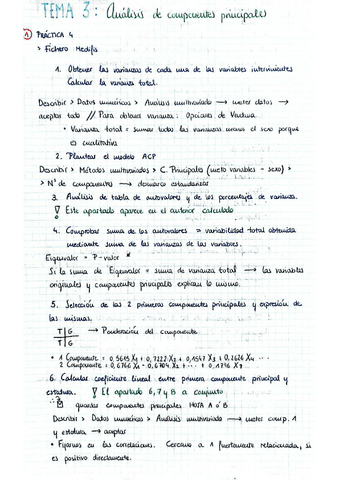 TEMA 3: Análisis de componentes principales
① PRÁCTICA 4
> Fichero Medifis
1. Obtener las varianzas de cada una de las variables intervinientes
Calcular la varianza total.
Describir > Datos numéricos > Análisis multivariado → meter datos →
aceptas todo // Para obtener varianza: Opciones de Ventana
• Varianza total = sumar todas las varianzas menos el sexo porque
es cualitativa
2. Plantear el modelo ACP
Describir > Métodos multivariados > C. Principales (meto variables - sexo) >
> Nº de componentes → desmarco estandarizar
3. Análisis de tabla de autovalores y de los porcentajes de varianza.
Este apartado aparece en el anterior calculado
4. Comprobar suma de los autovalores = variabilidad total obtenida
mediante suma de las varianzas de las variables.
Eigenvalor = P-valor
Si la suma de Eigenvalor = suma de varianza total → las variables
originales y componentes principales explican lo mismo.
5. Selección de las 2 primeras componentes principales y expresión de
las mismas.
T|G → Ponderación del componente
T|G
• 1 Componente = 0,5615 X1 + 0,7222 X2 + 0,1547 X3 + 0,2626 X4 ...
2 Componente = 0,6766 X1 - 0,6704 X2 + ... + 0,1796 X7
6. Calcular coeficiente lineal entre primera componente principal y
estatura. El apartado 6, 7 y 8 a conjunto
guardas componentes principales HOJA A ó B
Describir > Datos numéricos > Análisis multivariado → meter comp. 1
y estatura → aceptar
• Fijarnos en las correlaciones. Cercano a 1 fuertemente relacionada, si
es positivo directamente.